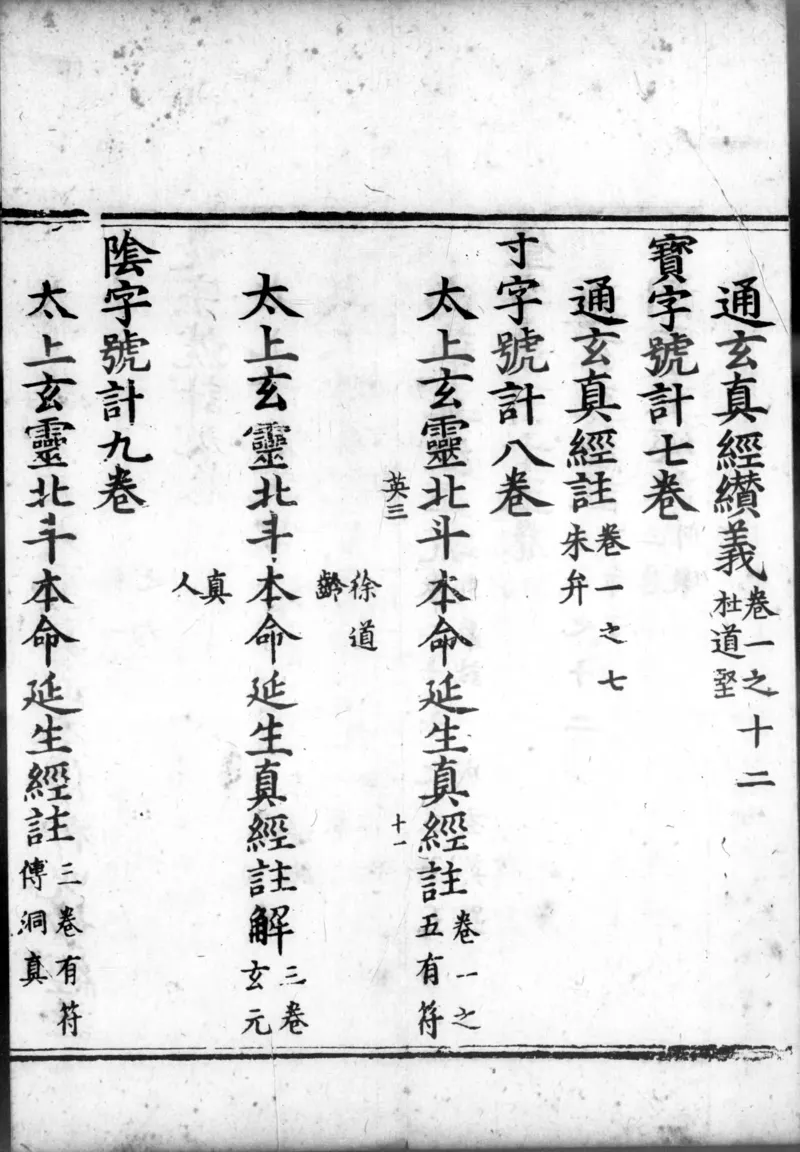 通玄真經纉義卷一之十二
杜道堅
寶字號計七卷
通玄真經註卷一之七
朱弁
寸字號計八卷
太上玄靈北斗本命延生真經註卷一之
五有符
英三
十一
徐道
齡
太上玄靈北斗本命延生真經註解三卷
玄元
真
人
陰字號計九卷
太上玄靈北斗本命延生經註三卷有符
傅洞真